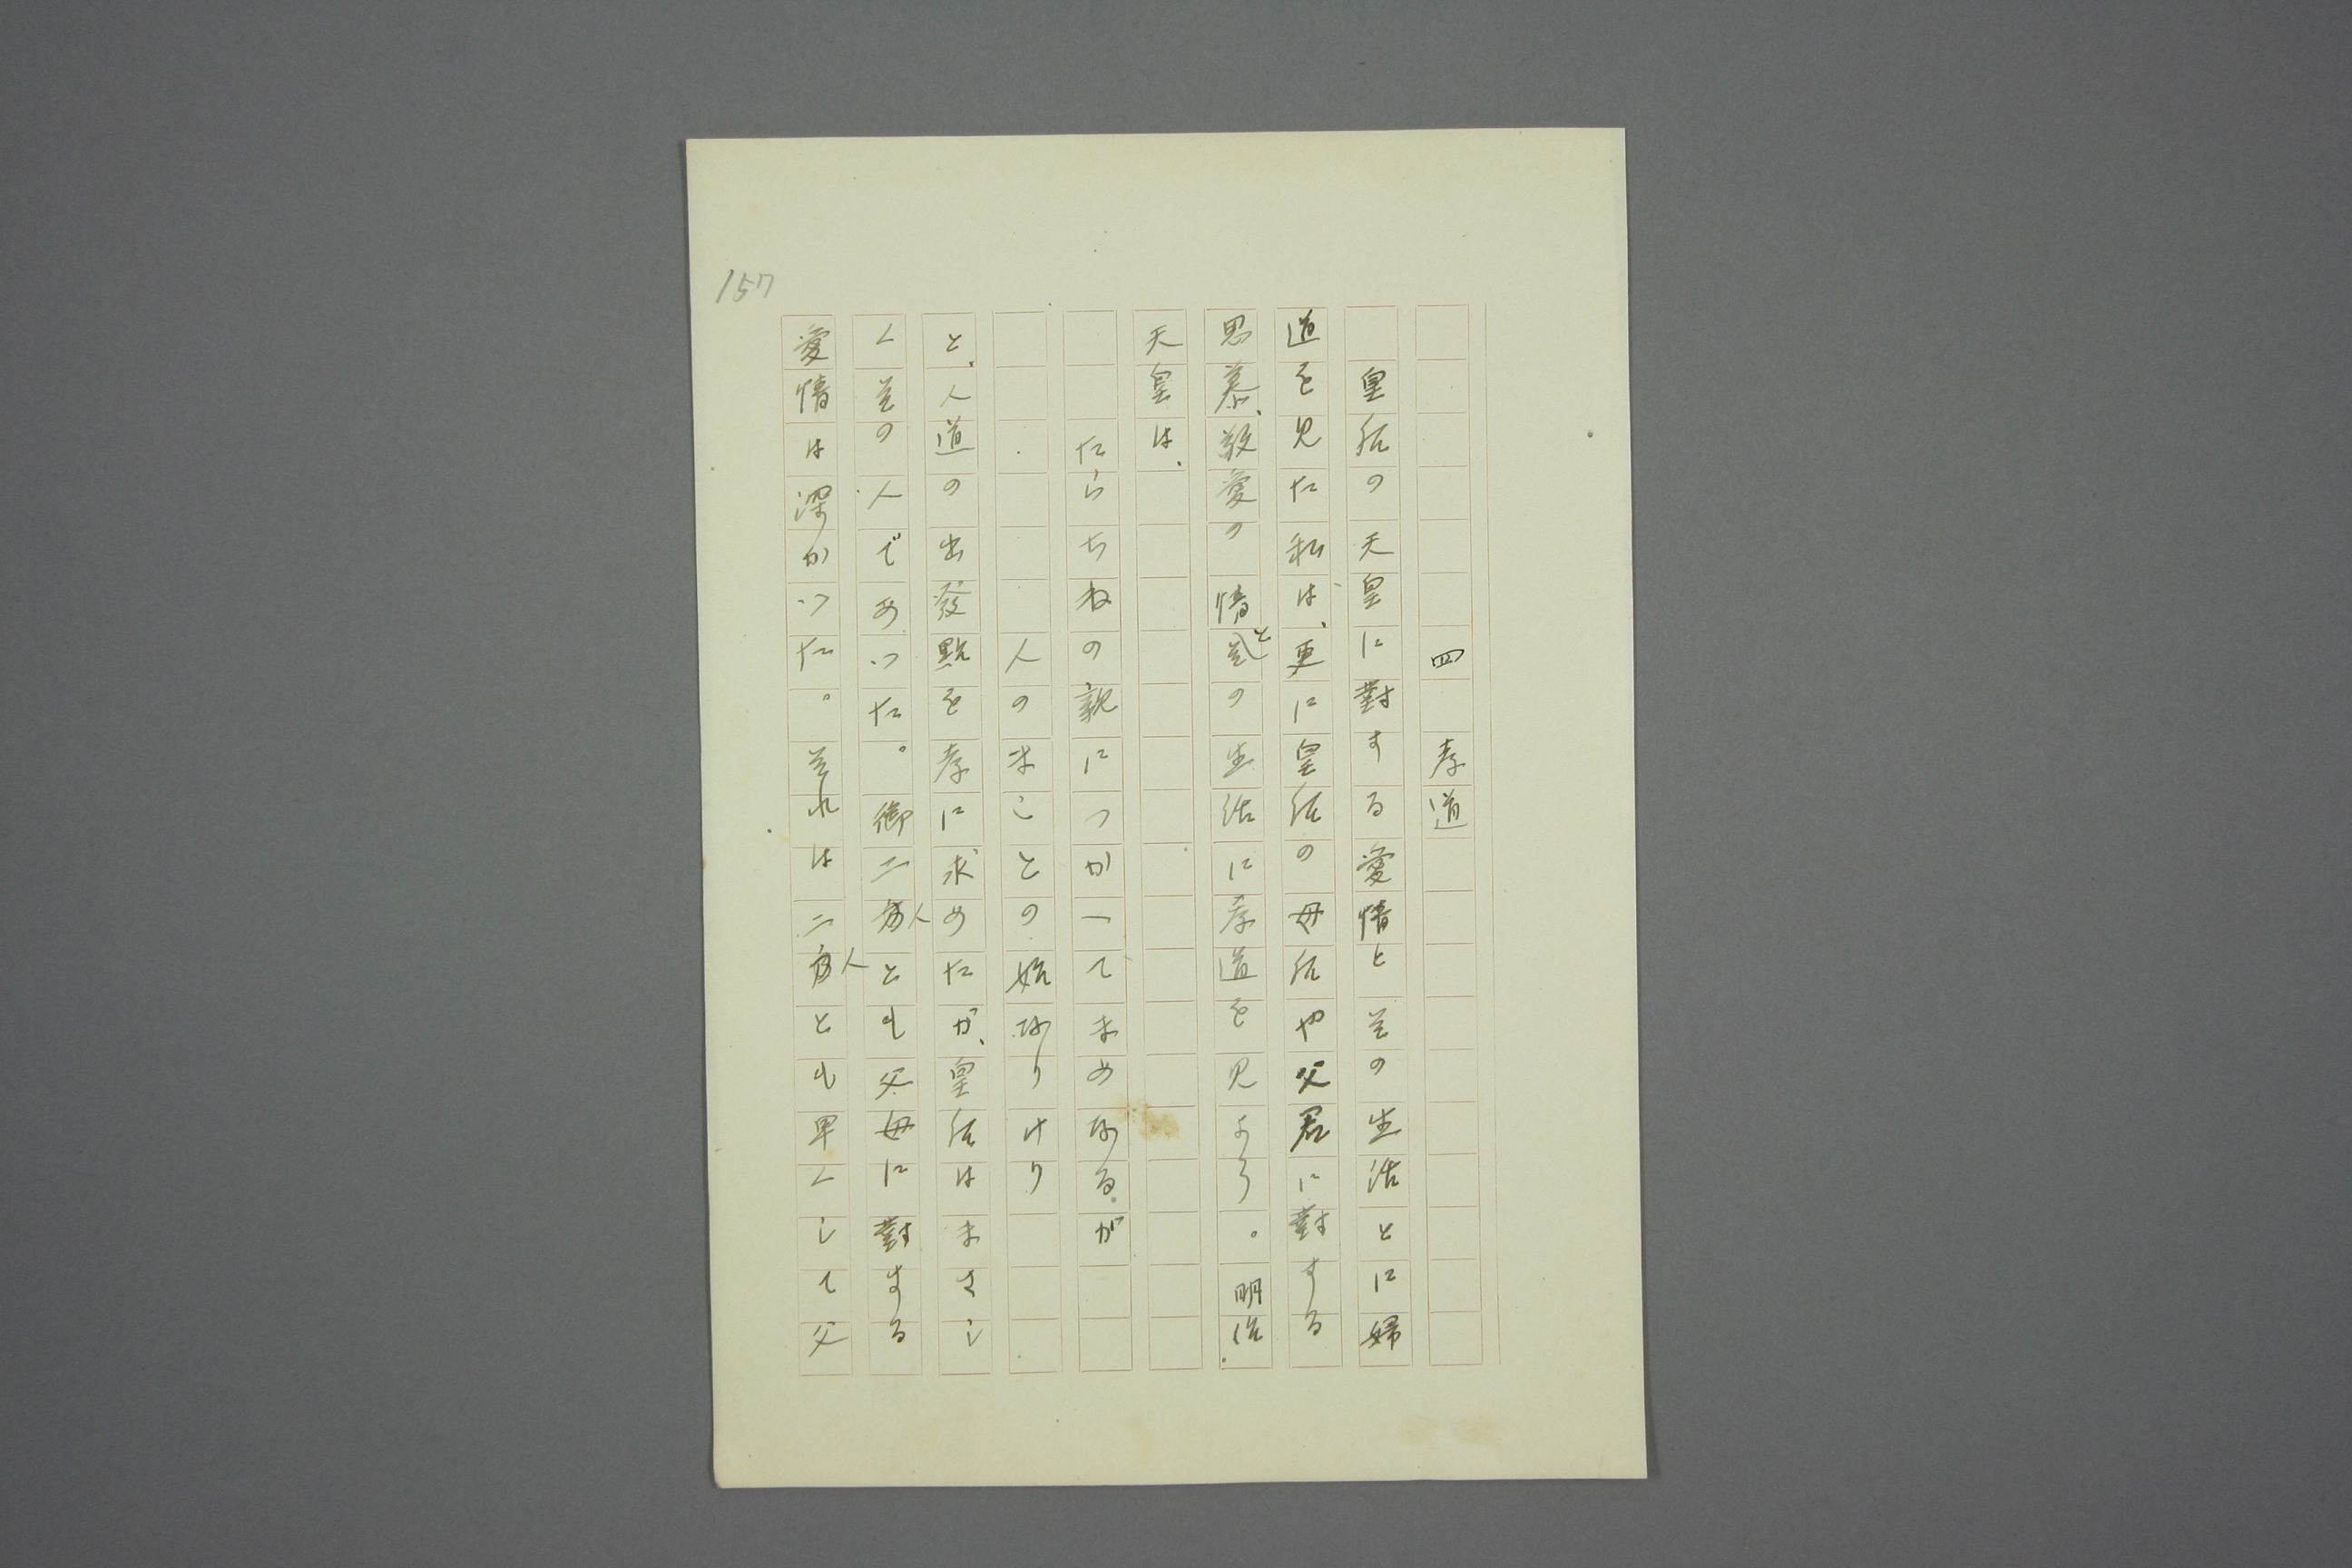 157
四　孝道
皇后の天皇に對する愛情と其の生活とに婦
道を見た私は、更に皇后の母后や父君に對する
思慕、敬愛の情と其の生活に孝道を見よう。明治
天皇は、
たらちねの親につかへてまめなるが
人のまことの始なりけり
と、人道の出發點を孝に求めたが、皇后はまさし
く其の人であつた。御二人とも父母に對する
愛情は深かつた。其れは二人とも早くして父